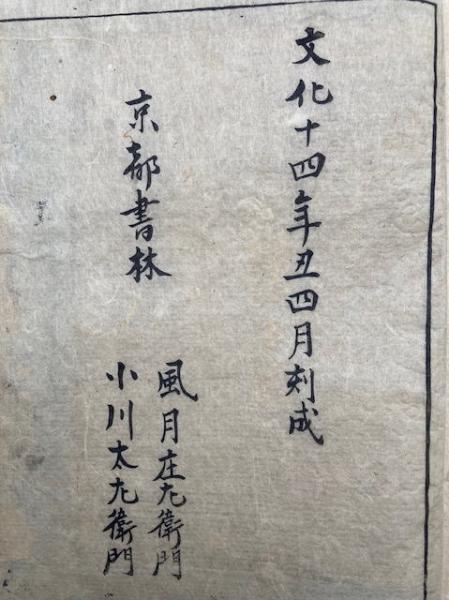 文化十四年丑四月刻成
京都書林
風月庄左衛門
小川太左衛門